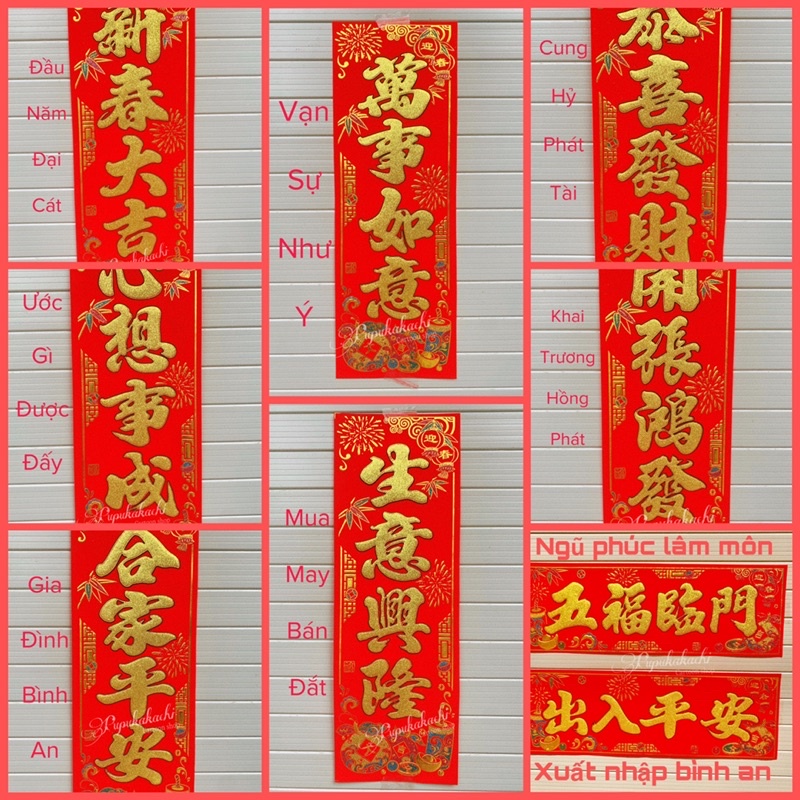 Đầu
Năm
Đại
Cát
新春大吉
Vạn
Sự
Như
Ý
迎春
萬事如意
Cung
Hỷ
Phát
Tài
恭喜發財
Ước
Gì
Được
Đấy
心想事成
Mua
May
Bán
Đắt
迎春
生意興隆
Khai
Trương
Hồng
Phát
開張鴻發
Gia
Đình
Bình
An
合家平安
Ngũ phúc lâm môn
五福臨門
出入平安
Xuất nhập bình an
Pupukakachi